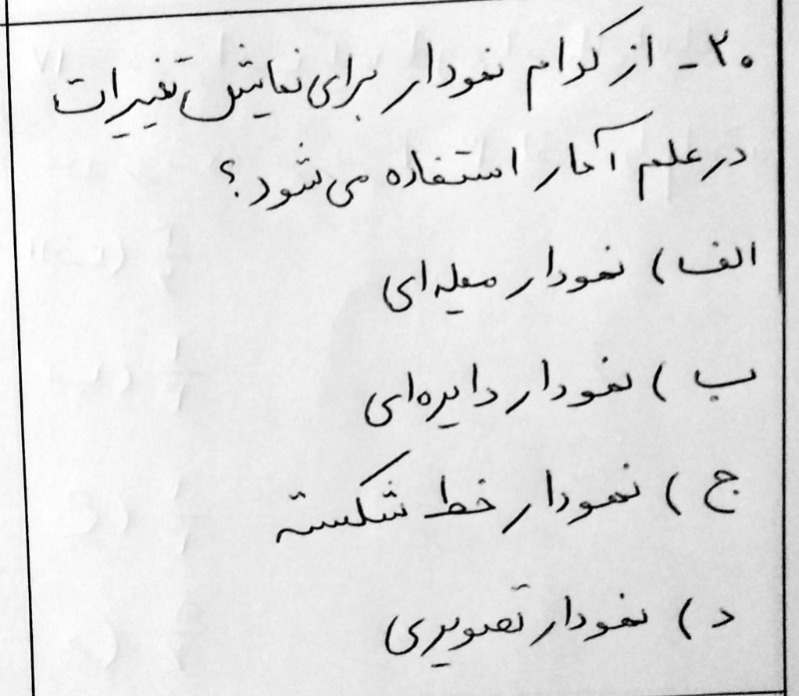 ۲۰- از کدام نمودار برای نمایش تغییرات
در علم آمار استفاده می‌شود؟
الف) نمودار میله‌ای
ب) نمودار دایره‌ای
ج) نمودار خط شکسته
د) نمودار تصویری